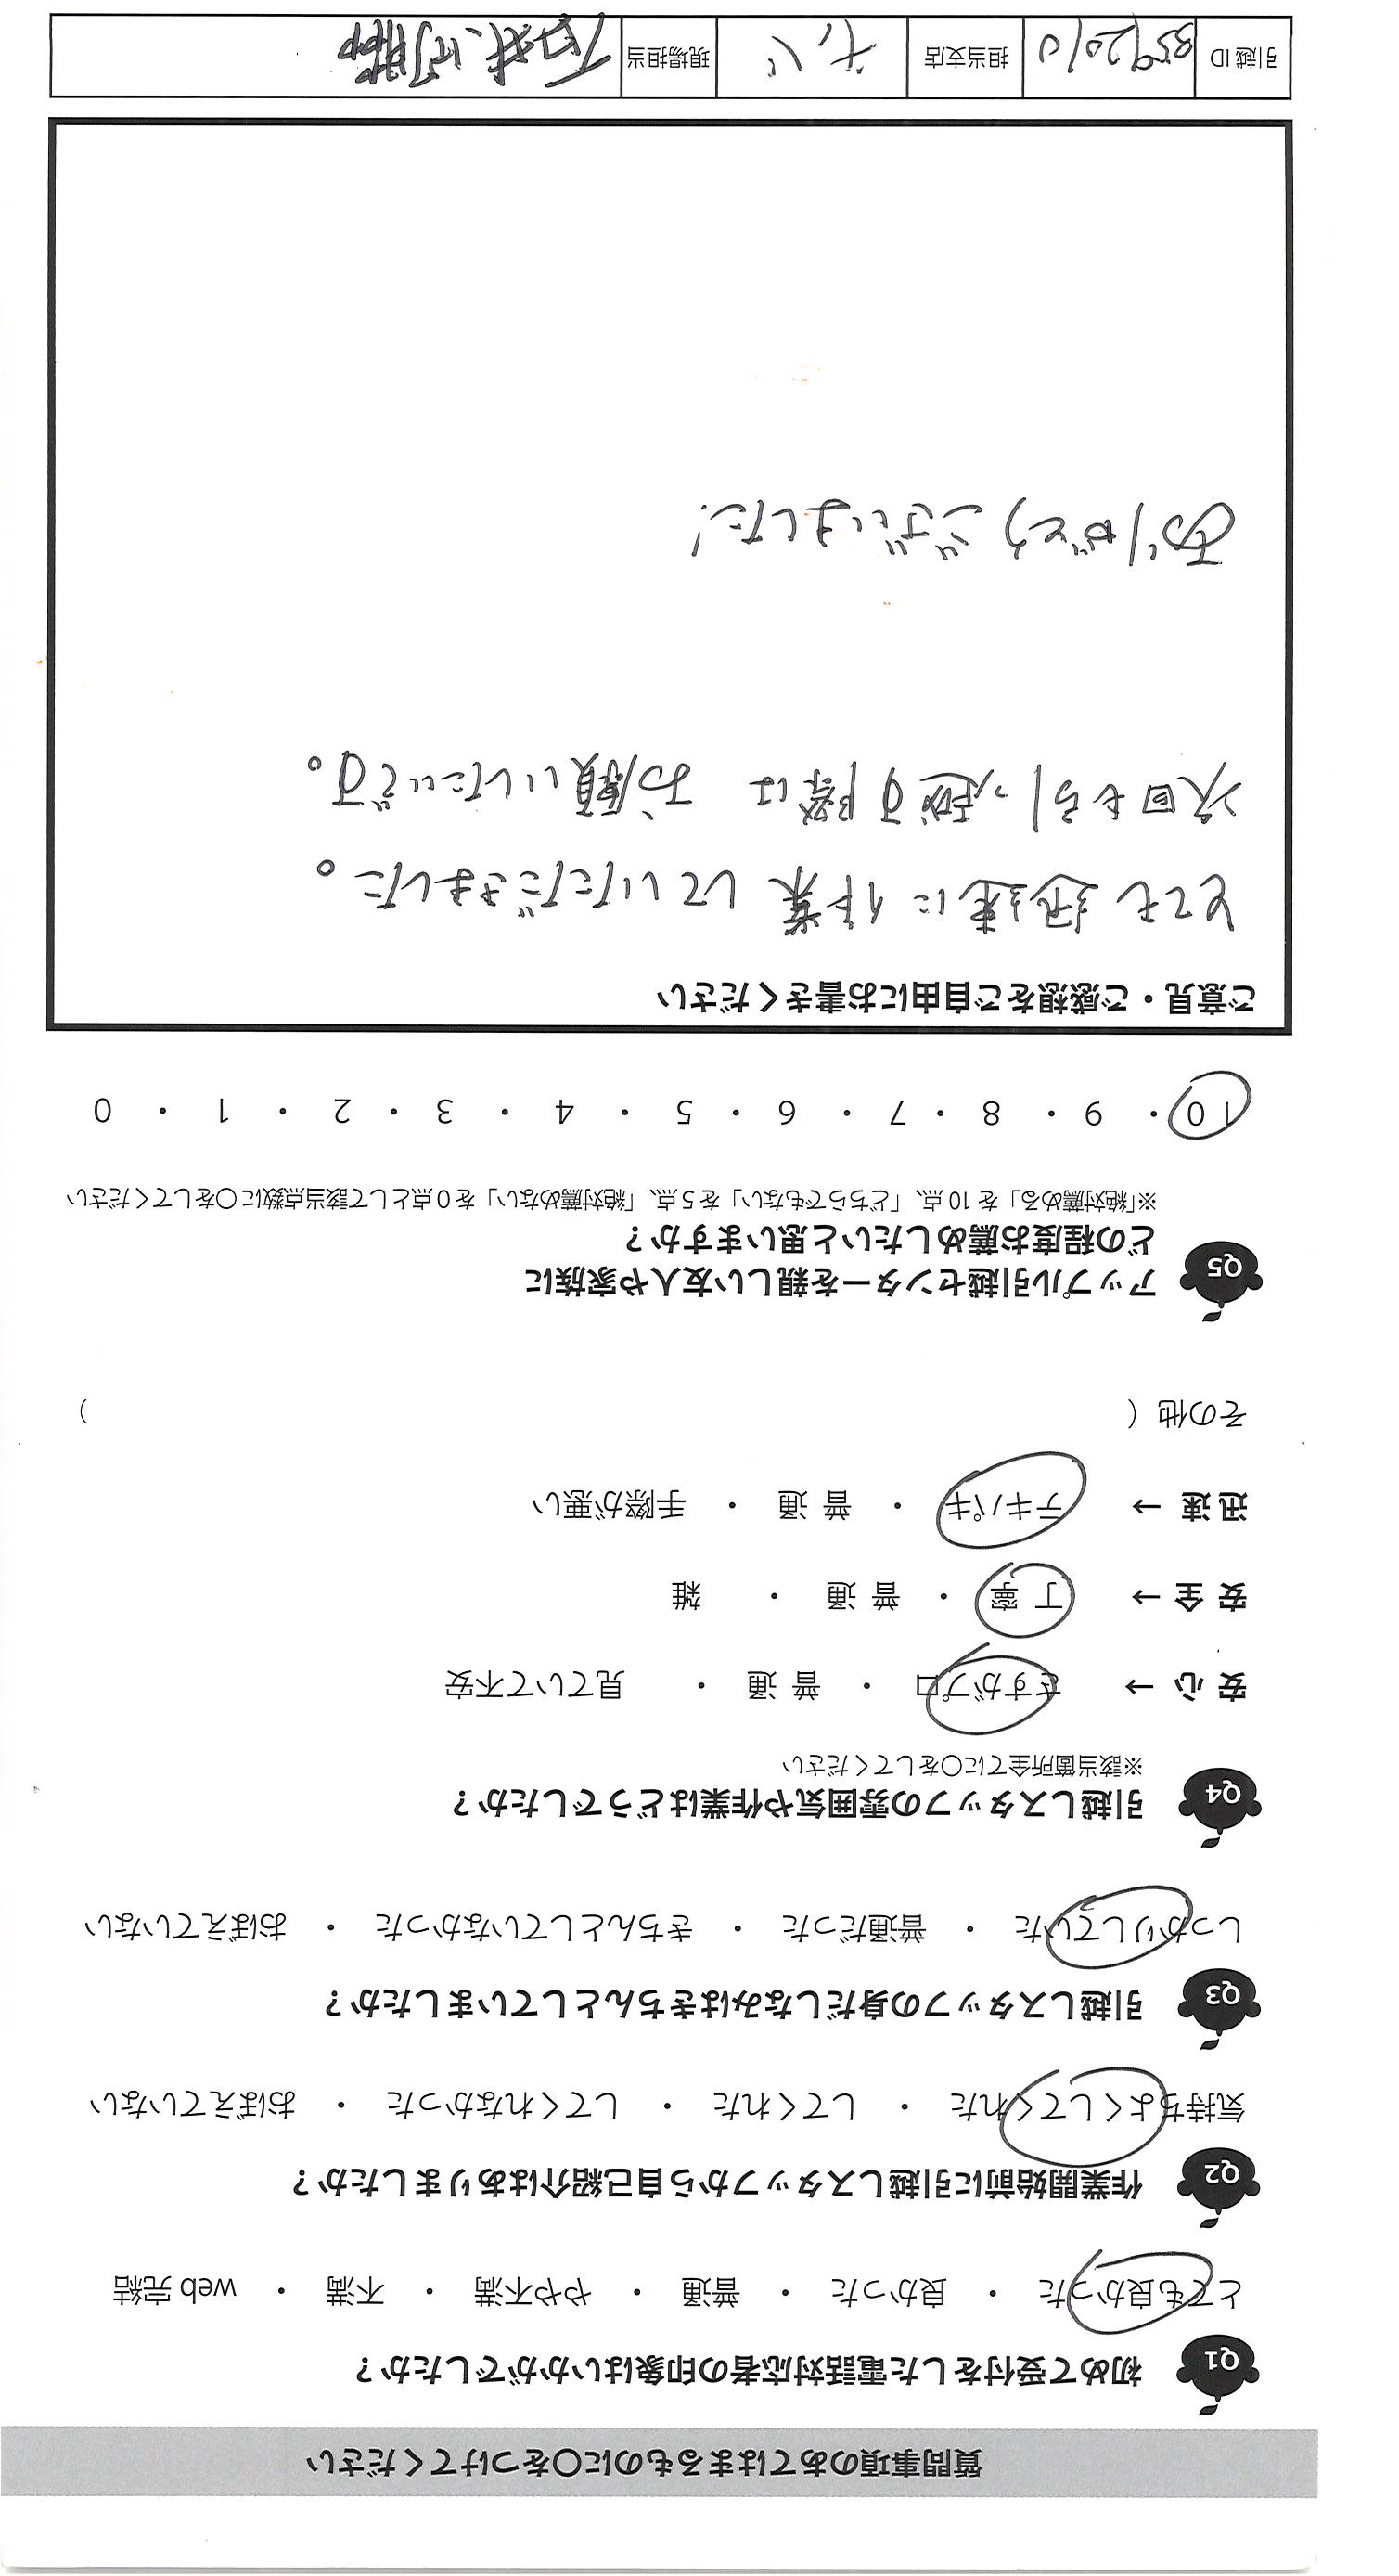 質問事項のあてはまるものに〇をつけてください
Q1 初めて受付をした電話対応者の印象はいかがでしたか？
とても良かった ・ 良かった ・ 普通 ・ やや不満 ・ 不満 ・ web 完結
Q2 作業開始前に引越しスタッフから自己紹介はありましたか？
気持ちよくしてくれた ・ してくれた ・ してくれなかった ・ おぼえていない
Q3 引越しスタッフの身だしなみはきちんとしていましたか？
しっかりしていた ・ 普通だった ・ きちんとしていなかった ・ おぼえていない
Q4 引越しスタッフの雰囲気や作業はどうでしたか？
※該当箇所全てに〇をしてください
安 心 → さすがプロ ・ 普 通 ・ 見ていて不安
安 全 → 丁 寧 ・ 普 通 ・ 雑
迅 速 → テキパキ ・ 普 通 ・ 手際が悪い
その他（ ）
Q5 アップル引越センターを親しい友人や家族に
どの程度お薦めしたいと思いますか？
※「絶対薦める」を 10 点、「どちらでもない」を 5 点、「絶対薦めない」を 0 点として該当点数に〇をしてください
10 ・ 9 ・ 8 ・ 7 ・ 6 ・ 5 ・ 4 ・ 3 ・ 2 ・ 1 ・ 0
ご意見・ご感想をご自由にお書きください
とても迅速に作業していただきました。
次回も引っ越す際は お願いしたいです。
ありがとうございました!
引越 ID 3592010 担当支店 現場担当